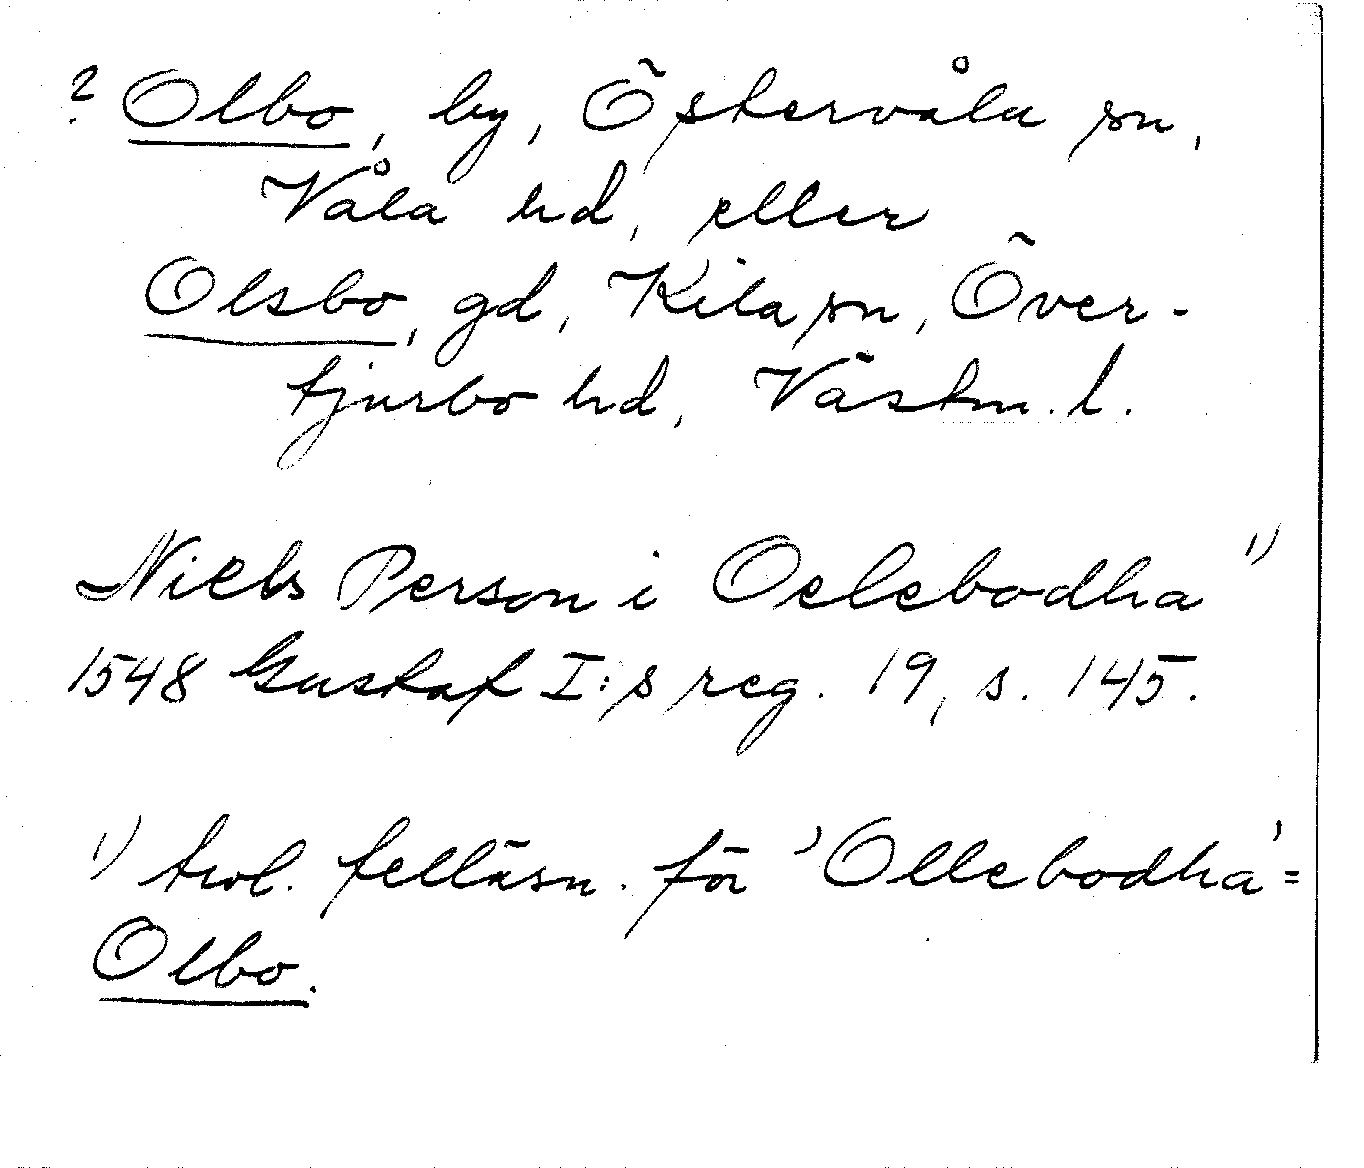 ? Olbo, by, Östervåla sn,
Våla hd, eller
Olsbo, gd, Kila sn, Över-
tjurbo hd, Västm. l.
Niels Person i Oelebodha 1)
1548 Gustaf I:s reg. 19, s. 145.
1) trol. felläsn. för 'Ollebodha' =
Olbo.